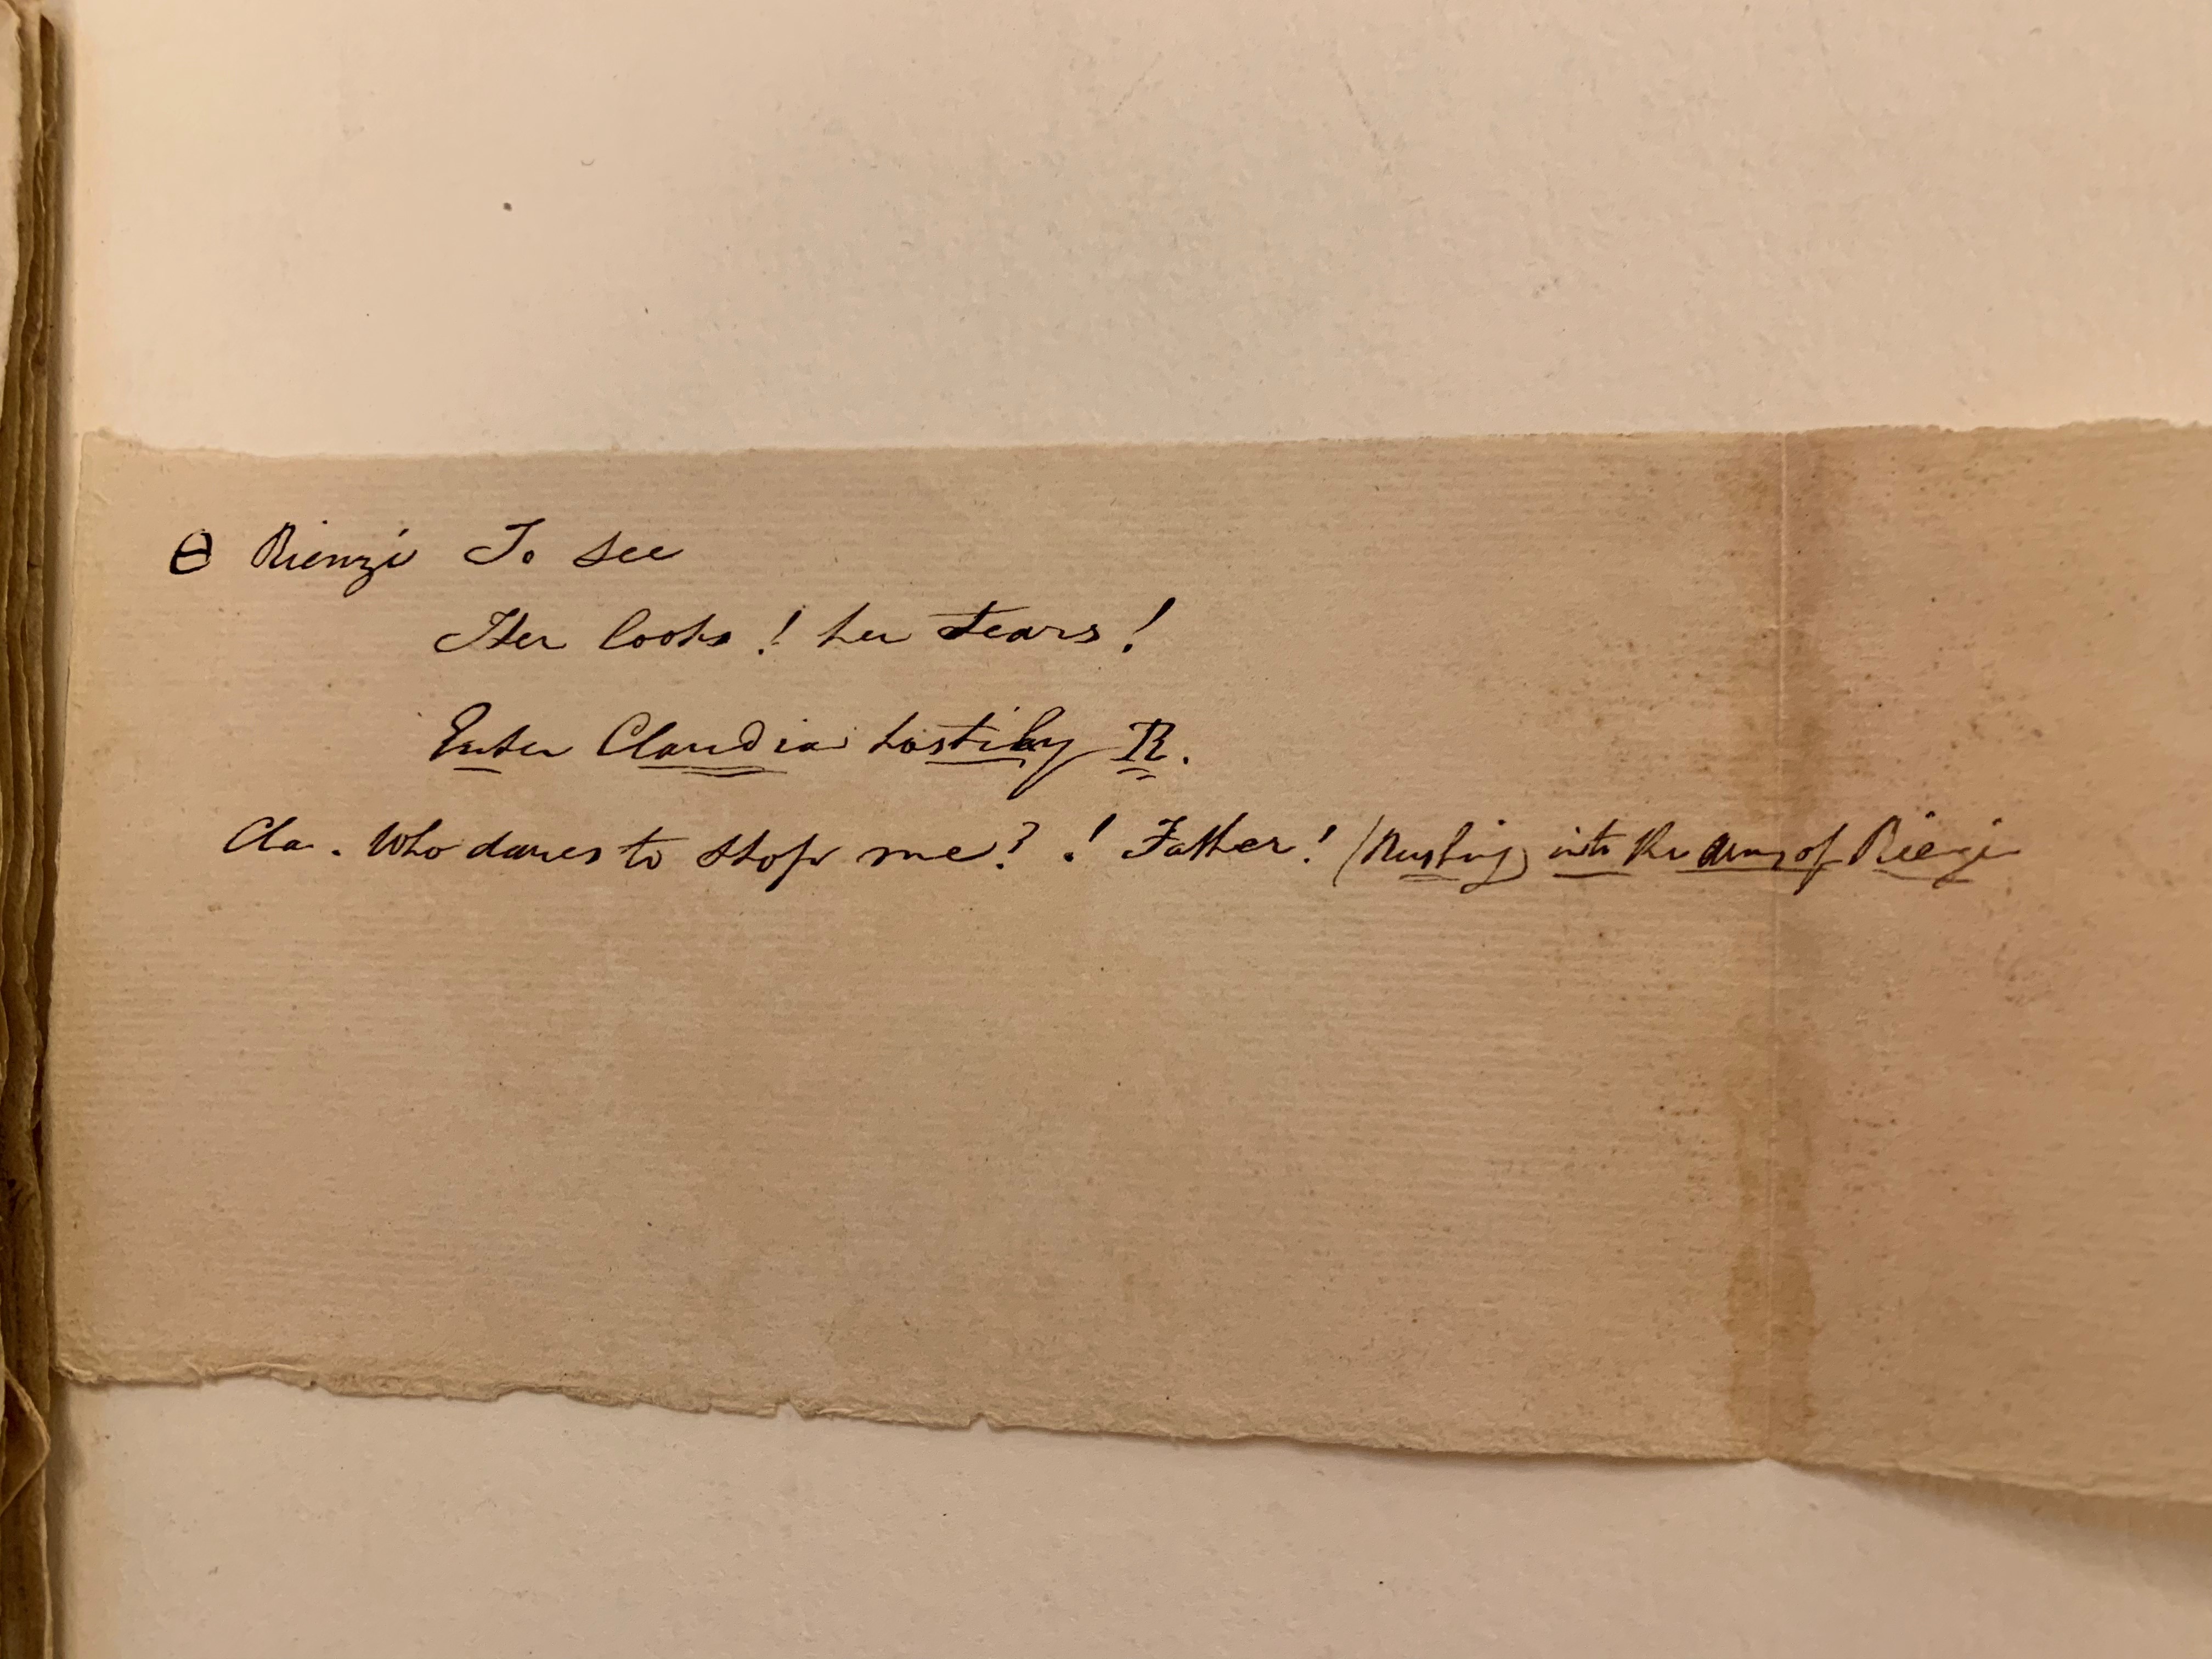 ϴ Rienzi To see
Her looks! her tears!
Enter Claudia hastily R.
Cla. Who dares to stop me? ! Father! (Rushing into the arms of Rienzi